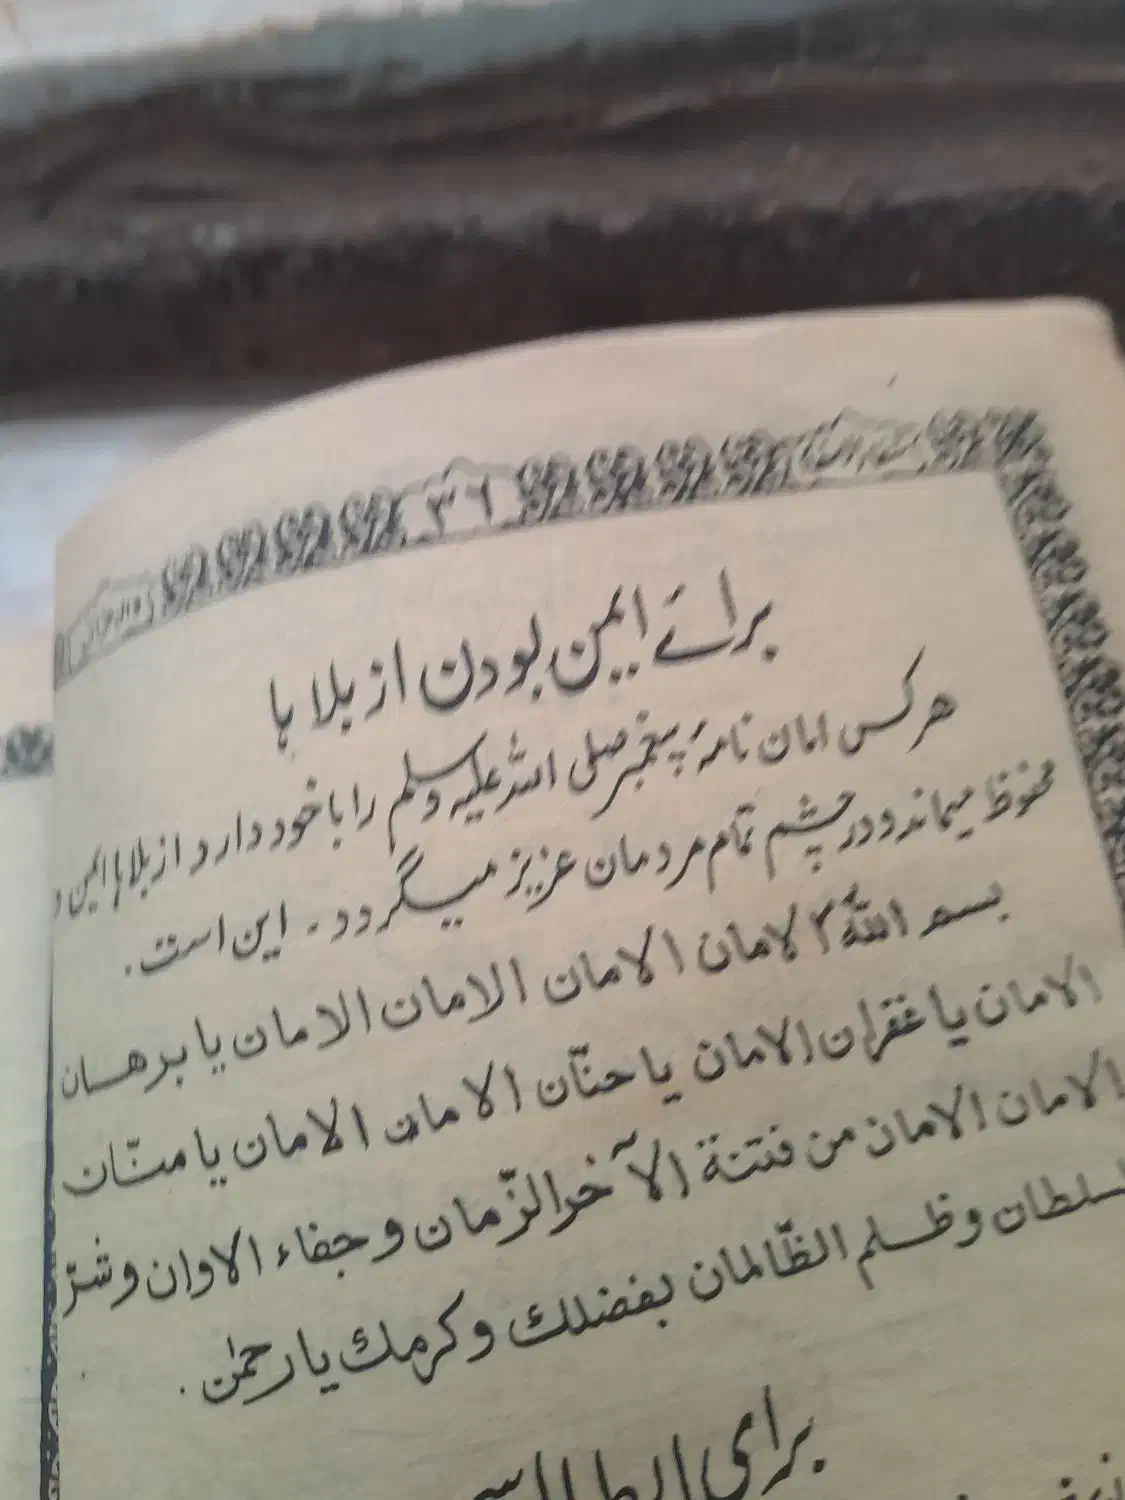 ۳۶
برائے ایمن بودن از بلا ہا
هر کس امان نامۂ پیغمبر صلی اللہ علیہ وسلم را با خود دارد از بلا ہا ایمن و
محفوظ میماند و در چشم تمام مردمان عزیز میگردد. این است.
بسم اللّٰه الامان الامان الامان الامان یا برهان
الامان یا غفران الامان یا حنّان الامان الامان یا منّان
الامان الامان من فتنة الآخر الزّمان و جفاء الاوان و شرّ
السلطان و ظلم الظّالمان بفضلك و كرمك یا رحمٰن.
برای